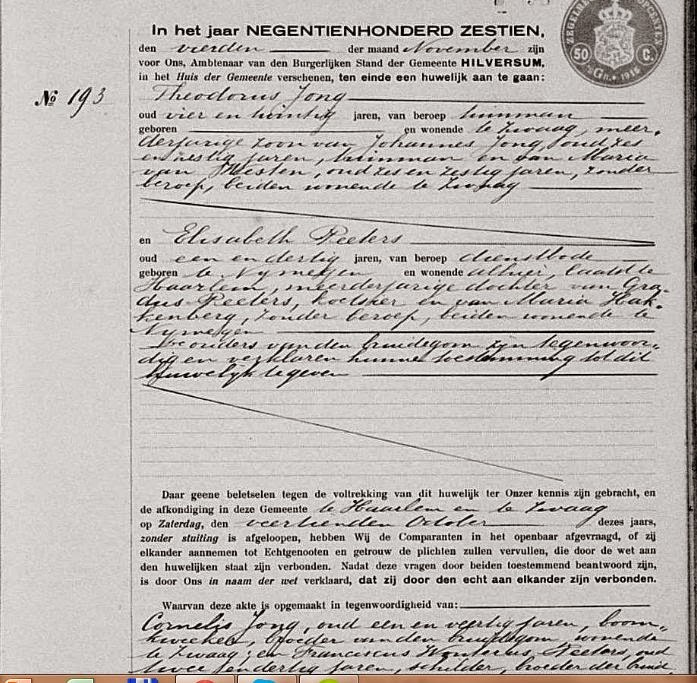 In het jaar NEGENTIENHONDERD ZESTIEN,
den vierden der maand November zijn
voor Ons, Ambtenaar van den Burgerlijken Stand der Gemeente HILVERSUM,
in het Huis der Gemeente verschenen, ten einde een huwelijk aan te gaan:
№ 193
Theodorus Jong
oud vier en twintig jaren, van beroep tuinman
geboren en wonende te Zwaag, meer-
derjarige zoon van Johannes Jong, oud zes
en zestig jaren, tuinman en van Maria
van Westen, oud zes en zestig jaren, zonder
beroep, beiden wonende te Zwaag
en Elisabeth Peeters
oud een en dertig jaren, van beroep dienstbode
geboren te Nymegen en wonende alhier, laatst te
Haarlem, meerderjarige dochter van Gra-
dus Peeters, koetsier en van Maria Hak-
kenberg, zonder beroep beiden wonende te
Nymegen
De ouders van den bruidegom zijn tegenwoor-
dig en verklaren hunne toestemming tot dit
huwelijk te geven
Daar geene beletselen tegen de voltrekking van dit huwelijk ter Onzer kennis zijn gebracht, en
de afkondiging in deze Gemeente te Haarlem en te Zwaag
op Zaterdag, den veertienden October dezes jaars,
zonder stuiting is afgeloopen, hebben Wij de Comparanten in het openbaar afgevraagd, of zij
elkander aannemen tot Echtgenooten en getrouw de plichten zullen vervullen, die door de wet aan
den huwelijken staat zijn verbonden. Nadat deze vragen door beiden toestemmend beantwoord zijn,
is door Ons in naam der wet verklaard, dat zij door den echt aan elkander zijn verbonden.
Waarvan deze akte is opgemaakt in tegenwoordigheid van:
Cornelis Jong, oud een en veertig jaren, boom-
kweeker, broeder van den bruidegom, wonende
te Zwaag; en Franciscus Peeters, oud
twee en dertig jaren, schilder, broeder der bruid
50 C.